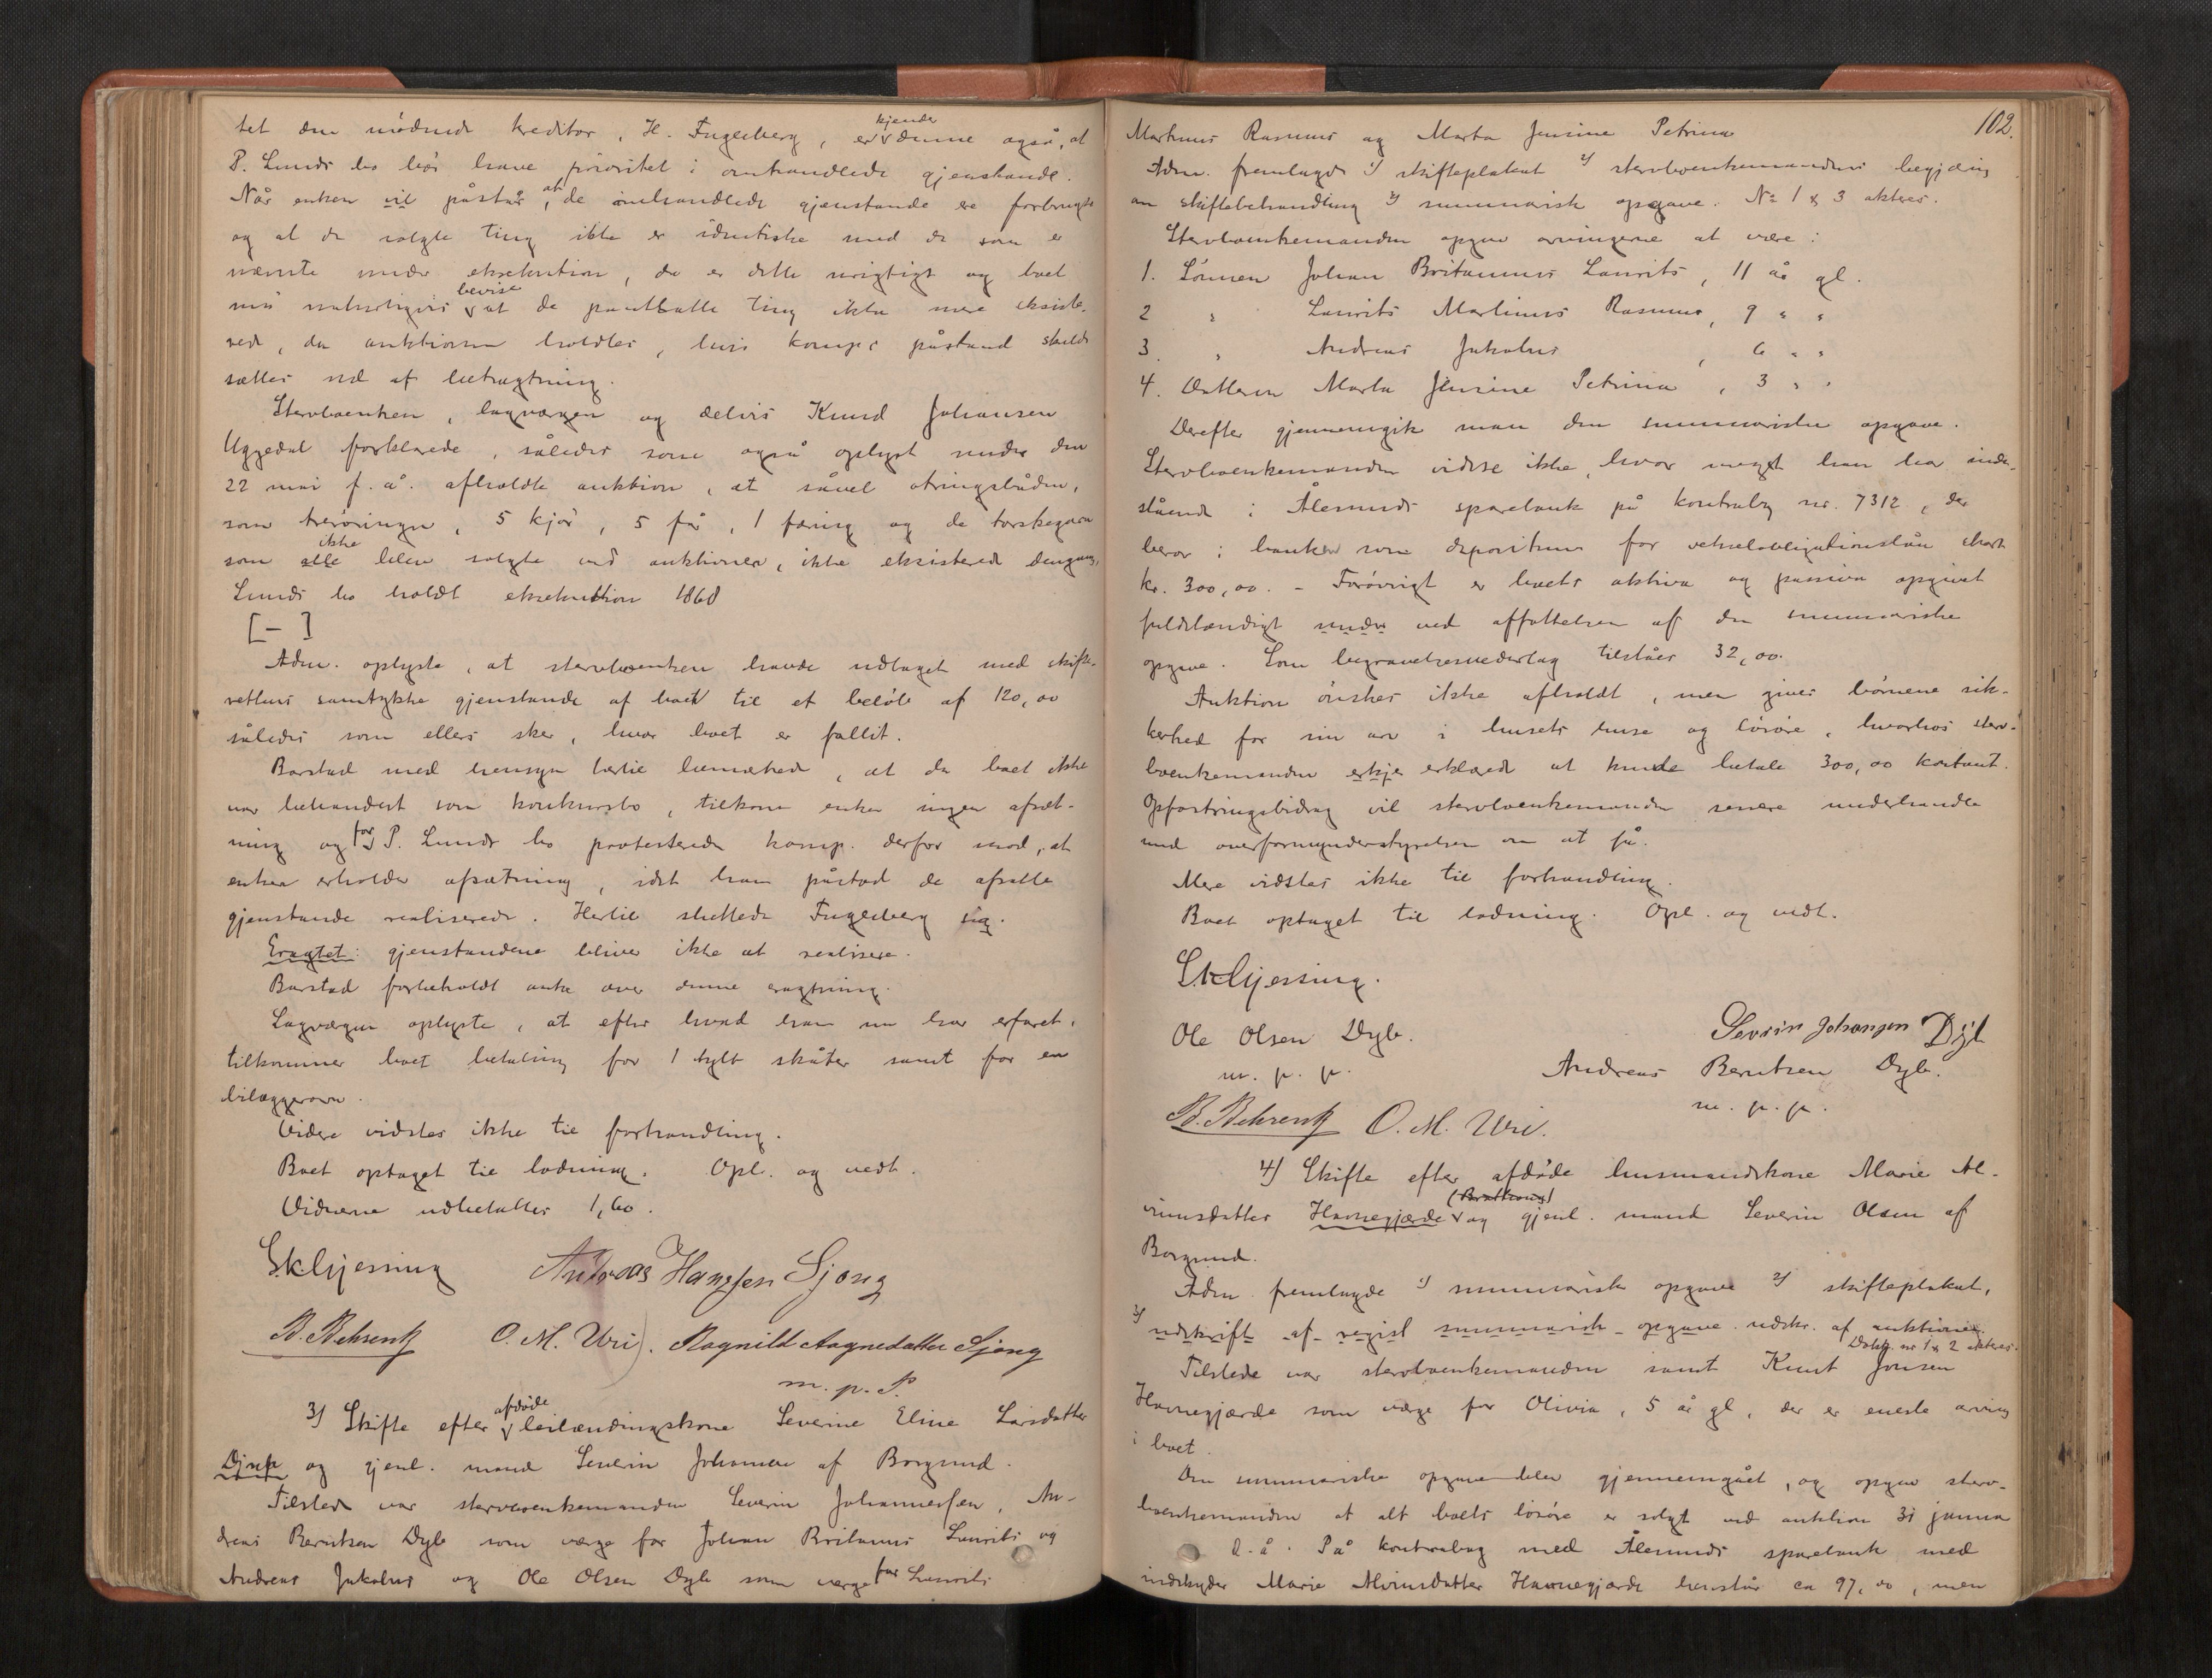 tet den mødende kreditor, H. Fugelberg, erkjender denne også, at
P. Lunds bo bør have prioritet i omhandlede gjenstande.
Når enken vil påstå, at de omhandlede gjenstande er forbrugte
og at de solgte ting ikke er identiske med de som er
nævnte under eksekution, da er dette urigtigt og boet
må naturligvis bevise at de pantsatte ting ikke mere eksiste-
rede, da auktionen holdtes, hvis komps påstand skulde
sættes ud af betragtning.
Stervboenken, lagværgen og delvis Knud Johansen
Uggedal forklarede, således som også oplyst under den
22 mai f. å. afholdte auktion, at såvel otringsbåden,
som treroringen, 5 kjør, 5 får, 1 færing og de torskegarn
som alle ikke blev solgte ved auktionen, ikke eksisterede dengang,
Lunds bo holdt eksekution 1868
[-]
Adm. oplyste, at stervboenken havde udtaget med skifte-
rettens samtykke gjenstande af boet til et beløb af 120,00
således som ellers sker, hvor boet er fallit.
Barstad med hensyn hertil bemærkede, at da boet ikke
var behandlet som konkursbo, tilkom enken ingen afsæt-
ning og for P. Lunds bo protesterede komp. derfor mod, at
enken erholder afsætning, idet han påstod de afsatte
gjenstande realiserede. Hertil sluttede Fugelberg sig.
Eragtet: gjenstandene bliver ikke at realisere.
Barstad forbeholdt anke over denne eragtning.
Lagværgen oplyste, at efter hvad han nu har erfaret,
tilkommer boet betaling for 1 tylt skåter samt for en
bilæggerovn.
Videre vidstes ikke til forhandling.
Boet optaget til lodning. Opl. og vedt.
Vidnerne udbetaltes 1,60.
E. Khjerring Andreas Hanssen Sjong
B. Behrentz O. M. Uri. Ragnild Aagnedatter Sjong
m. p. P.
3) Skifte efter afdøde leilændingskone Severine Eline Larsdatter
Djup og gjenl. mand Severin Johansen af Borgund.
Tilstede var stervboenkemanden Severin Johannessen, An-
dreas Berntsen Dyb som værge for Johan Britanus Laurits og
Andreas Jakobus og Ole Olsen Dyb som værge for Laurits
102.
Martinus Rasmus og Marta Jensine Petrina
Adm. fremlagde 1) skifteplakat 2) stervboenkemandens begjæring
om skiftebehandling 3) summarisk opgave. No 1 & 3 akteres.
Stervboenkemanden opgav arvingerne at være:
1. Sønnen Johan Britannus Laurits, 11 år gl.
2 " Laurits Martinus Rasmus, 9 " "
3. " Andreas Jakobus, 6 " "
4. Datteren Marta Jensine Petrina, 3 " "
Derefter gjennemgik man den summariske opgave.
Stervboenkemanden vidste ikke, hvor meget han har inde-
stående i Ålesunds sparebank på kontrabog nr. 7312, der
beror i banken som depositum for vekselobligationslån stort
kr. 300,00. - Forøvrigt er boets aktiva og passiva opgivet
fuldstændigt under ved affattelsen af den summariske
opgave. Som begravelsesvederlag tilståes 32,00.
Auktion ønskes ikke afholdt, men gives børnene sik-
kerhed for sin arv i husets huse og løsøre, hvorhos sterv-
boenkemanden erkje erklærede at kunde betale 300,00 kontant.
Opfostringsbidrag vil stervboenkemanden senere underhandle
med overformynderstyrelsen om at få.
Mere vidstes ikke til forhandling.
Boet optaget til lodning. Opl. og vedt.
E. Khjerring.
Ole Olsen Dyb. Sevrin Johansen Dÿb
m. p. p. Andreas Berntsen Dyb.
m. p. p.
B. Behrentz O. M. Uri.
4) Skifte efter afdøde husmandskone Marie Al-
vinusdatter Havnegjærde (Brathaug) og gjenl. mand Severin Olsen af
Borgund.
Adm. fremlagde 1) summarisk opgave 2) skifteplakat,
3) udskrift af regist summarisk opgave udskr. af auktionen.
Dokt. nr 1 & 2 akteres.
Tilstede var stervboenkemanden samt Knut Jonsen
Havnegjærde som værge for Olivia, 5 år gl, der er eneste arving
i boet.
Den summariske opgave blev gjennemgået, og opgav sterv-
boenkemanden at alt boets løsøre er solgt ved auktion 31 janua
d. å. På kontrabog med Ålesunds sparebank med
indskyder Marie Alvinusdatter Havnegjærde henstår ca 97,00, men